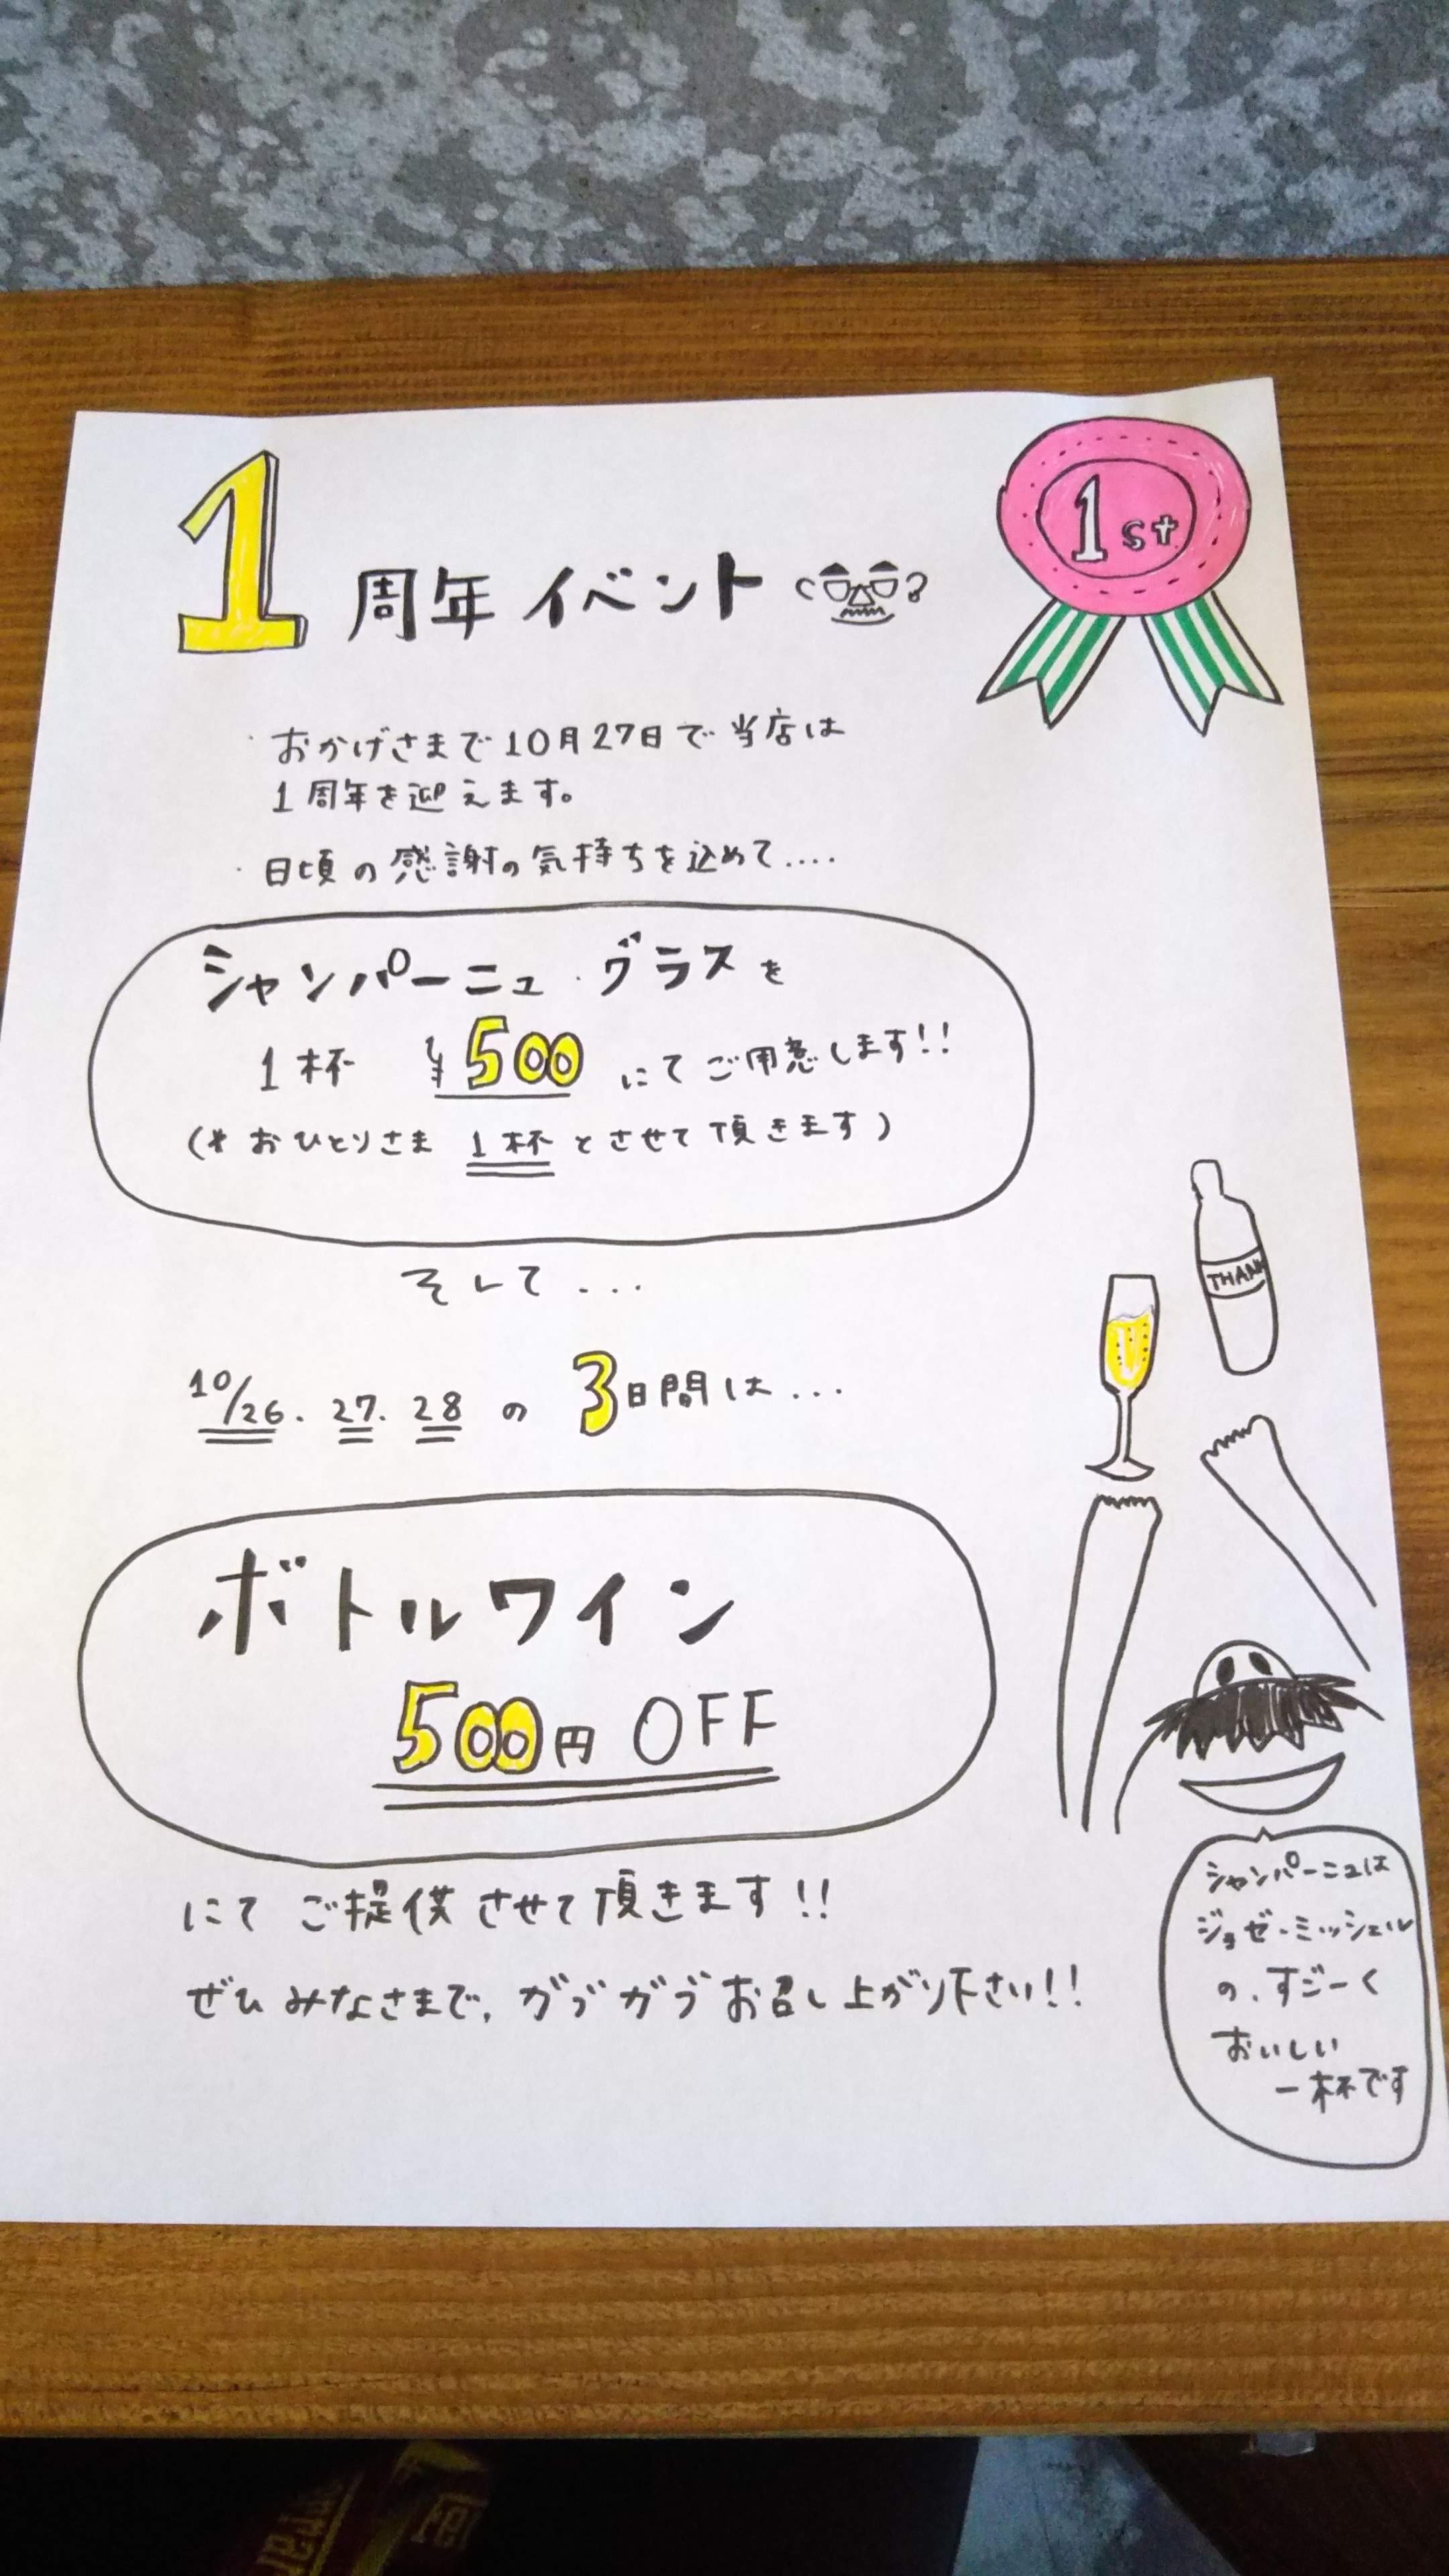 1周年イベント
1st
おかげさまで10月27日で当店は
1周年を迎えます。
日頃の感謝の気持ちを込めて....
シャンパーニュ・グラスを
1杯 ¥500 にてご用意します!!
(※おひとりさま 1杯とさせて頂きます)
そして...
10/26. 27. 28 の 3日間は...
ボトルワイン
500円 OFF
にてご提供させて頂きます!!
ぜひみなさまで、ガブガブお召し上がり下さい!!
THANK
シャンパーニュは
ジョゼ・ミッシェル
の、すごーく
おいしい
一杯です